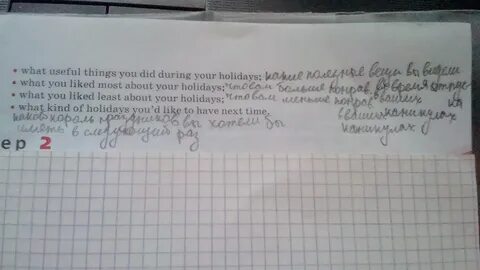 • what useful things you did during your holidays; какие полезные вещи вы видели
• what you liked most about your holidays; что вам больше понрав. во время
• what you liked least about your holidays; что вам меньше понрав. ваших
• what kind of holidays you'd like to have next time. ваших каникулах
вы хотели бы каникулах
иметь в следующий раз
ер 2